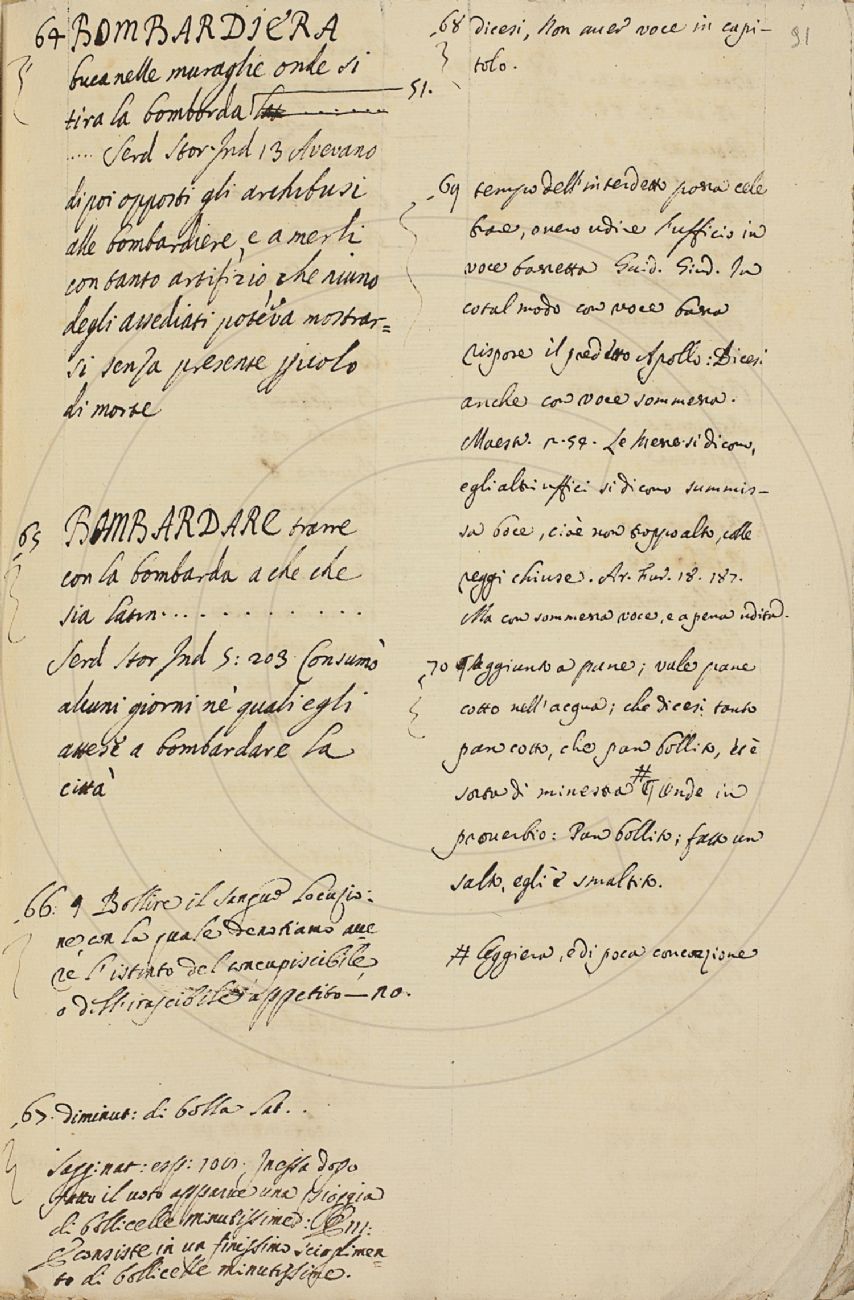 64 BOMBARDIERA
buca nelle muraglie onde si
tira la bombarda 51.
..... Serd Stor. Ind 13 Avevano
dipoi opposti gli archibusi
alle bombardiere, e a merli
con tanto artifizio, che niuno
degli assediati poteva mostrar=
si senza presente
di morte
65 BOMBARDARE trarre
con la bombarda a che che
sia latin. . . . . . . . . . .
Serd Stor Ind 5: 203 Consumò
alcuni giorni nè quali egli
attese a bombardare la
città
66. ¶ Bollire il sangue locuzio:
ne, con la quale denotiamo ave
re l'istinto del concupiscibile,
o dell'irascibile appetito — no.
67. diminut: di bolla Lat. .
Sagg: nat: esp: Inessa dopo
fatto il voto apparve una pioggia
di bollicelle minutissime:
consiste in un finissimo scioglimen=
to di bollicelle minutissime.
91
68 dicesi, Non aver voce in capi-
tolo.
69 tempo dell'interdetto possa cele
brare, overo udire l'ufficio in
voce bassetta Guid. Giud. In
cotal modo con voce bassa
rispose il predetto Apollo: Dicesi
anche con voce sommessa.
Maestr. 2. 54. Le messe si dicono,
e gli altri uffici si dicono summis-
sa voce, cioè non troppo alto, colle
reggi chiuse. Ar. Fur. 18. 187.
Ma con sommessa voce, e a pena udita.
70 ¶ Aggiunto a pane; vale pane
cotto nell'acqua; che dicesi tanto
pan cotto, che pan bollito, ed è
sorta di minestra # ¶ onde in
proverbio: Pan bollito; fatto un
salto, egli è smaltito.
# leggiera, e di poca concozione